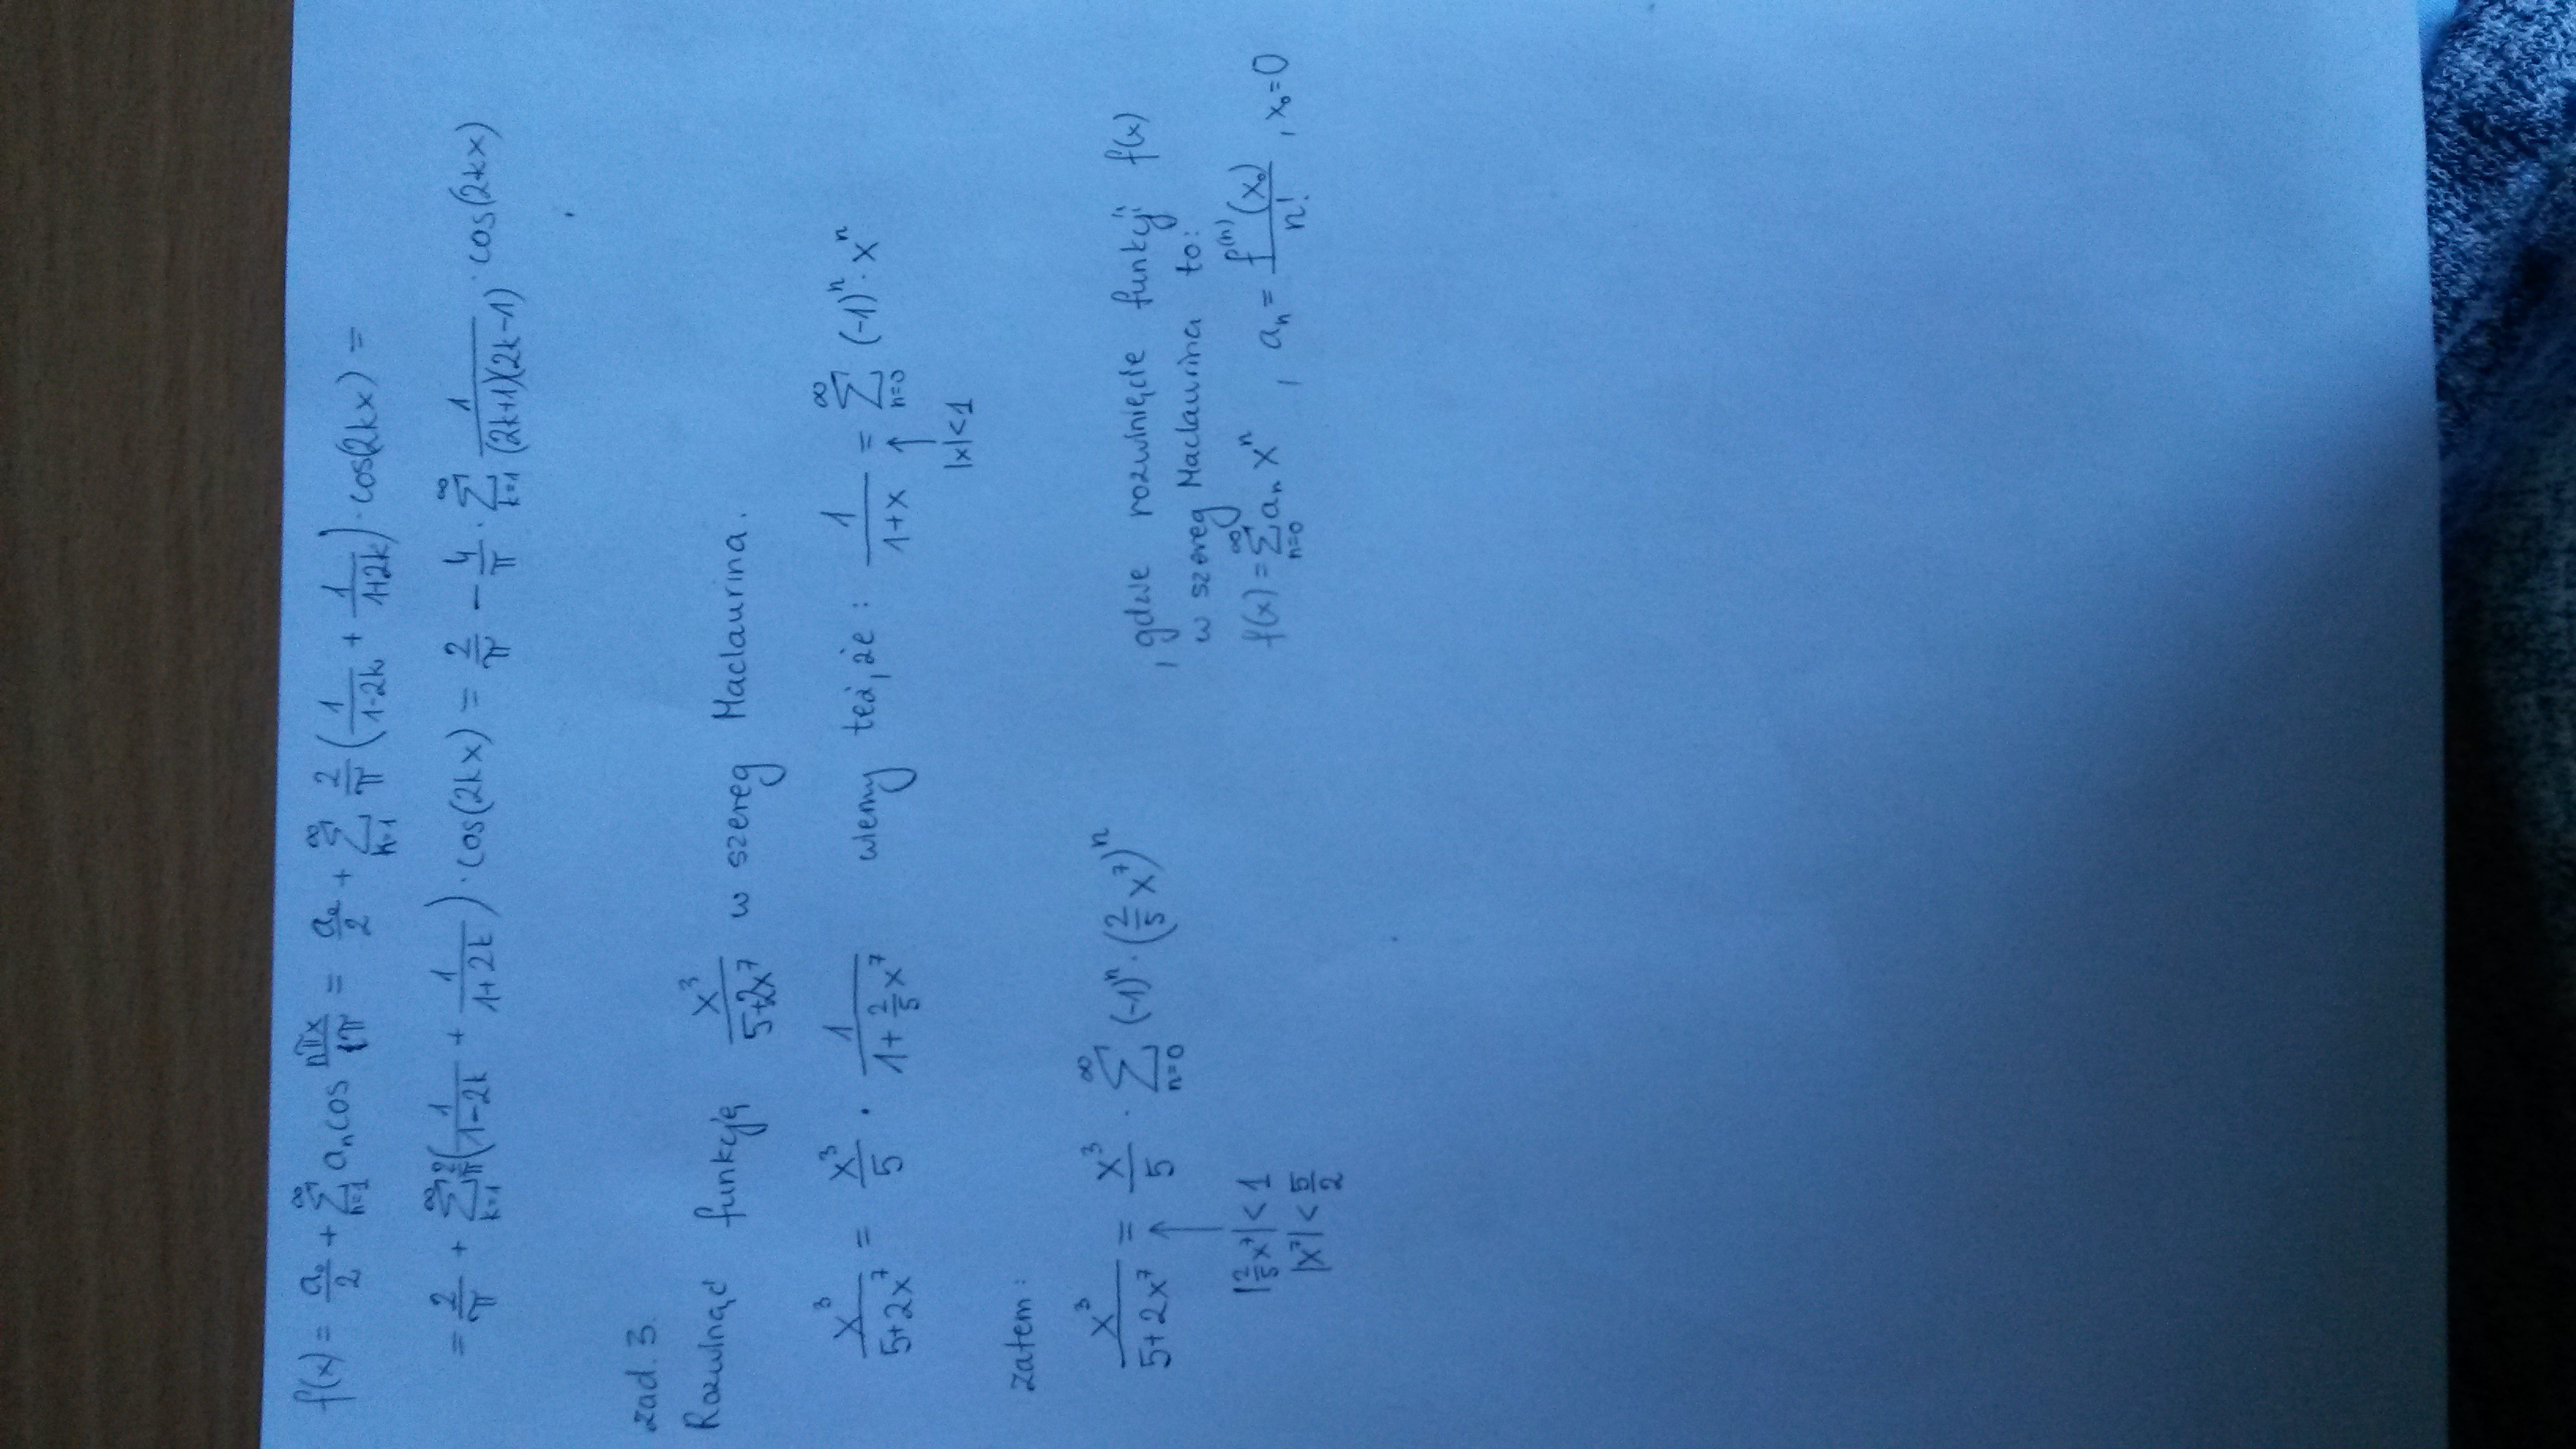 f(x) = a₀/2 + ∑_{n=1}^{∞} aₙ cos nπx/π = a₀/2 + ∑_{k=1}^{∞} 2/π (1/(1-2k) + 1/(1+2k)) · cos(2kx) =
= 2/π + ∑_{k=1}^{∞} 2/π (1/(1-2k) + 1/(1+2k)) · cos(2kx) = 2/π - 4/π · ∑_{k=1}^{∞} 1/((2k+1)(2k-1)) · cos(2kx)
zad. 3.
Rozwinąć funkcję x³/(5+2x⁷) w szereg Maclaurina.
x³/(5+2x⁷) = x³/5 · 1/(1+(2/5)x⁷) wiemy też, że : 1/(1+x) = ∑_{n=0}^{∞} (-1)ⁿ · xⁿ
↑
|x|<1
zatem:
x³/(5+2x⁷) = x³/5 · ∑_{n=0}^{∞} (-1)ⁿ · (2/5 x⁷)ⁿ
↑
|2/5 x⁷| < 1
|x⁷| < 5/2
, gdzie rozwinięcie funkcji f(x)
w szereg Maclaurina to:
f(x) = ∑_{n=0}^{∞} aₙ xⁿ , aₙ = f⁽ⁿ⁾(x₀)/n! , x₀=0